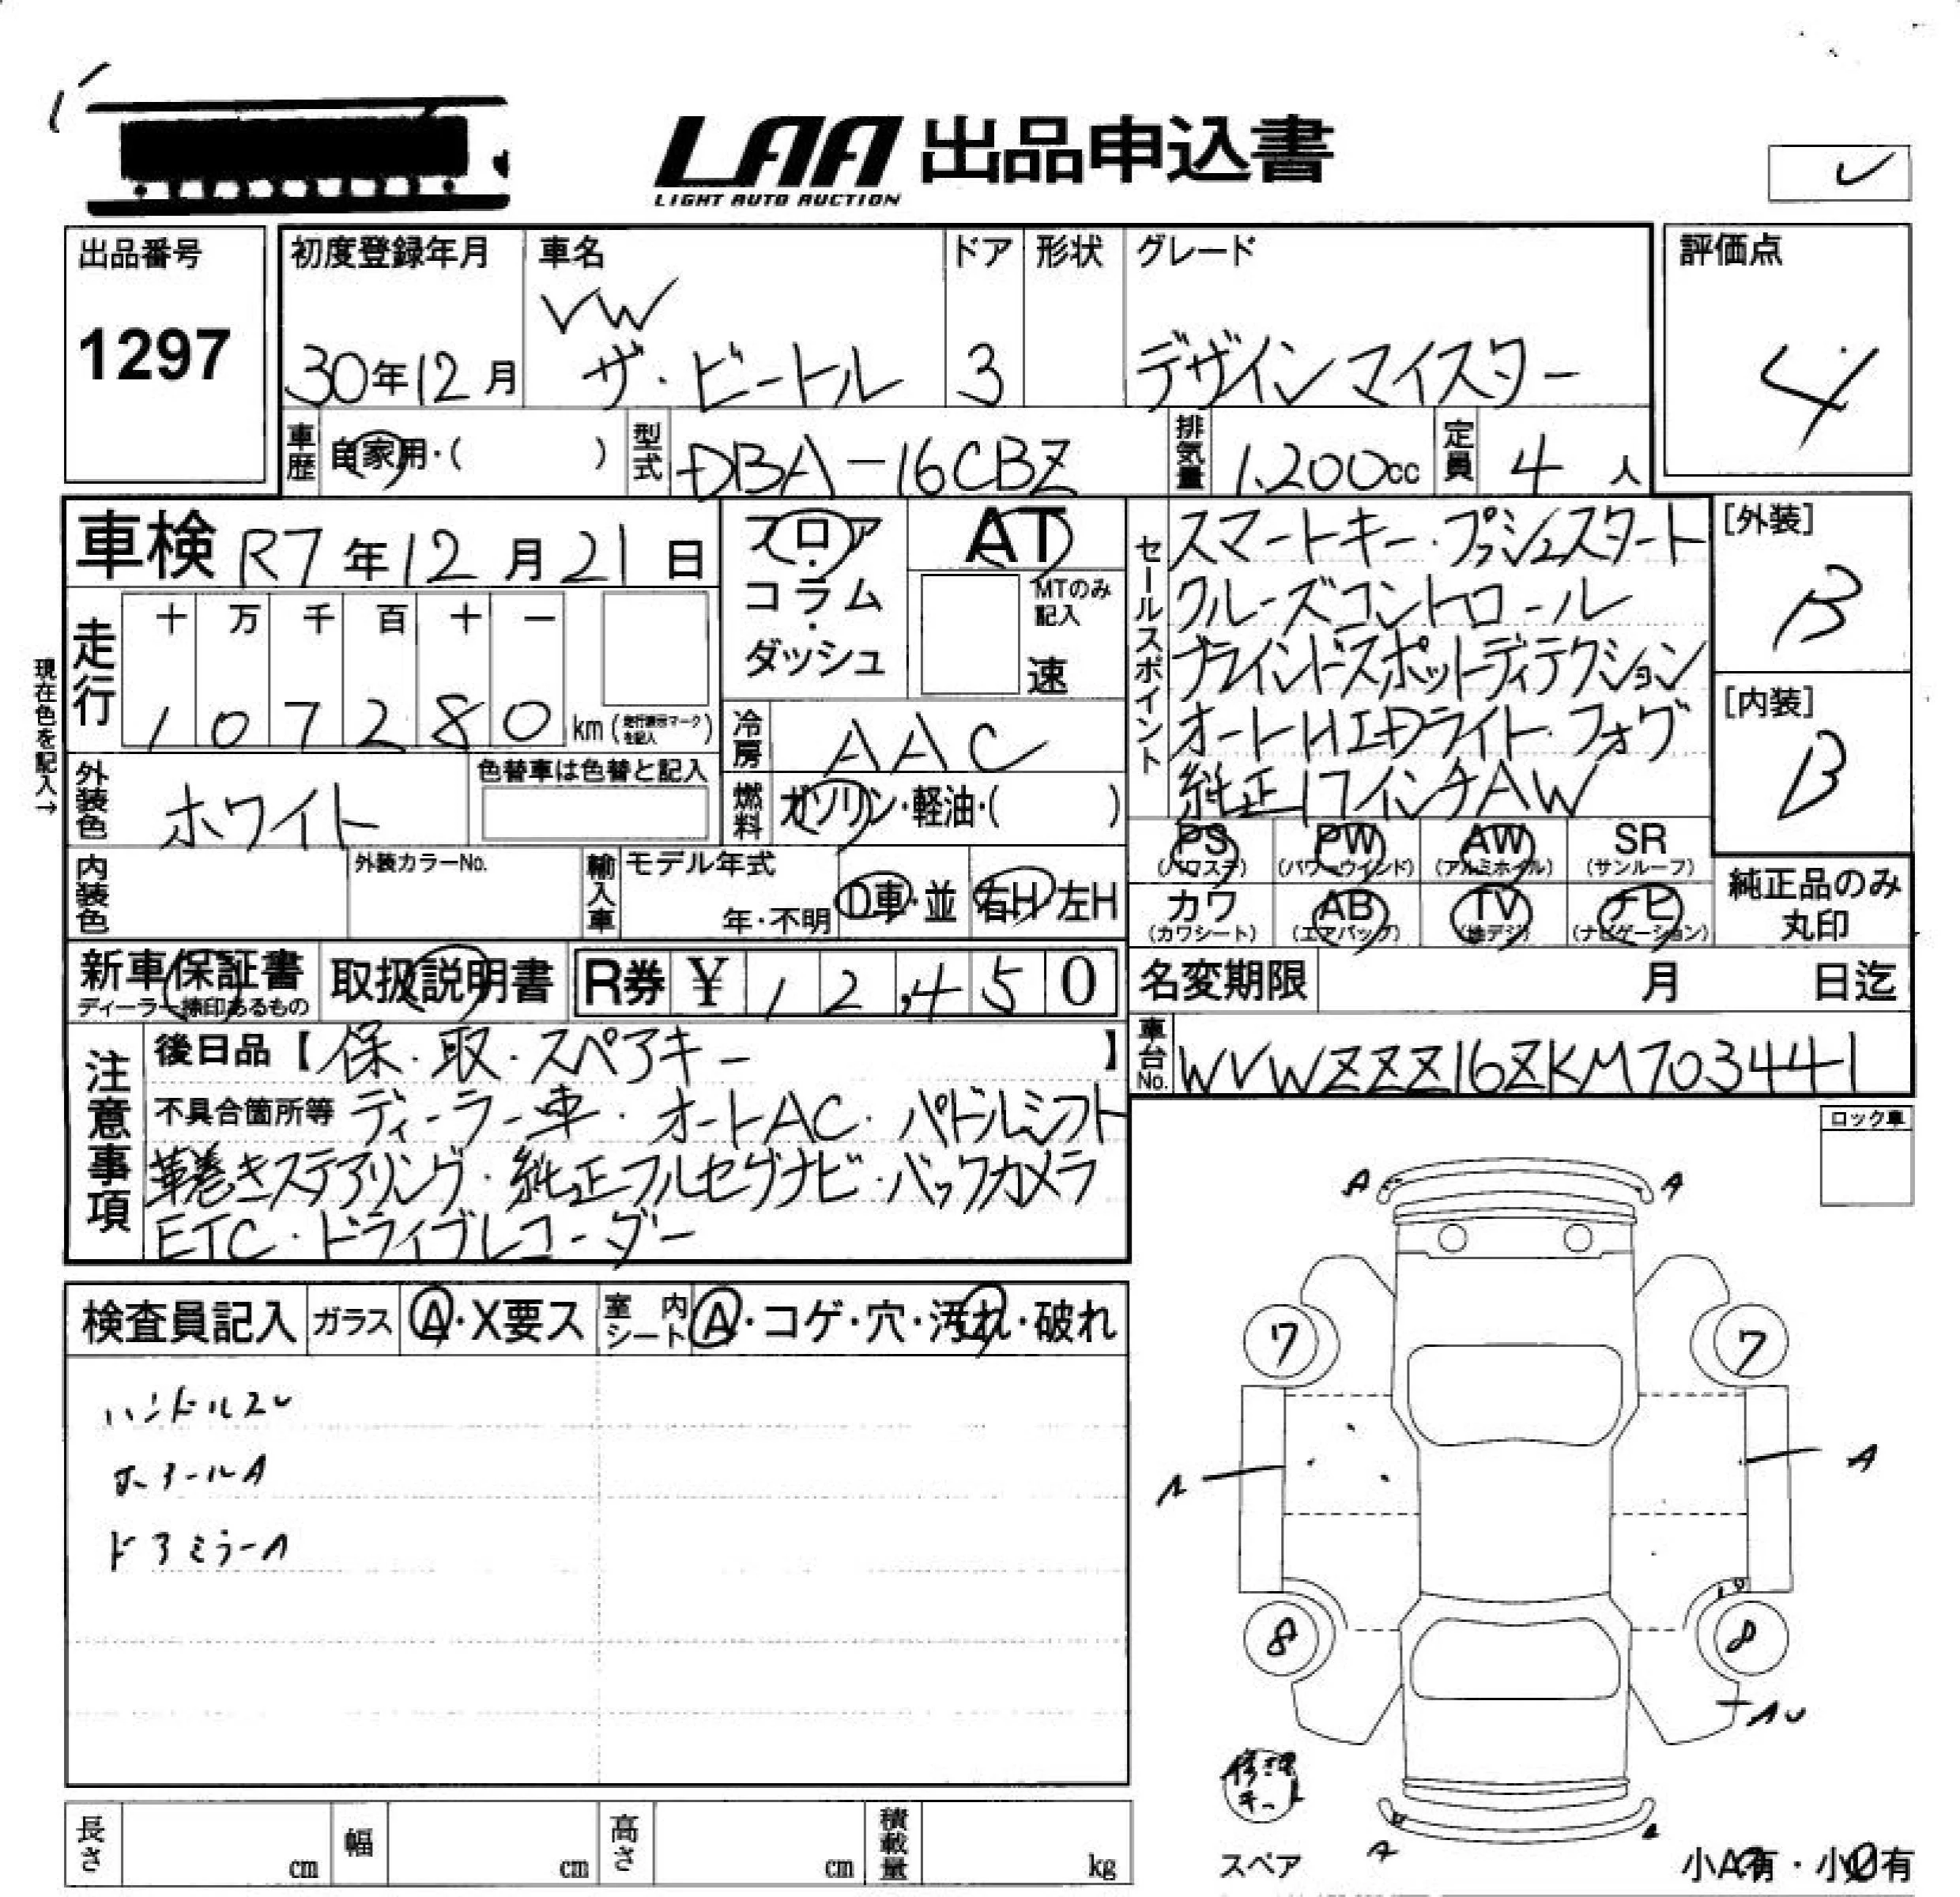 LAA 出品申込書
LIGHT AUTO AUCTION
出品番号
1297
初度登録年月
30年12月
車名
VW
ザ・ビートル
ドア
3
形状
グレード
デザインマイスター
評価点
4
車歴
自家用・( )
型式
DBA-16CBZ
排気量
1.200cc
定員
4人
車検 R7年12月21日
フロア・コラム・ダッシュ
AT
MTのみ記入
速
走行
十 万 千 百 十 一
1 0 7 2 8 0 km (走行表示マークを記入)
現在色を記入→
冷房
AAC
燃料
ガソリン・軽油・( )
外装色
ホワイト
色替車は色替と記入
内装色
外装カラーNo.
輸入車
モデル年式
年・不明
D車・並
右H 左H
セールスポイント
スマートキー・プッシュスタート
クルーズコントロール
ブラインドスポットディテクション
オートHIDライト・フォグ
純正17インチAW
[外装]
B
[内装]
B
PS (パワステ)
PW (パワーウインド)
AW (アルミホイル)
SR (サンルーフ)
カワ (カワシート)
AB (エアバッグ)
TV (地デジ)
ナビ (ナビゲーション)
純正品のみ丸印
新車保証書
ディーラー捺印あるもの
取扱説明書
R券 ¥ 12,450
名変期限 月 日迄
車台No.
WVWZZZ16ZKM703441
注意事項
後日品【保・取・スペアキー】
不具合箇所等 ディーラー車・オートAC・パドルシフト
革巻きステアリング・純正フルセグナビ・バックカメラ
ETC・ドライブレコーダー
ロック車
検査員記入
ガラス
A・X要ス
室内シート
A・コゲ・穴・汚れ・破れ
ハンドルスレ
ホイールA
ドアミラーA
A A
7 7
A A
8 8
修理キット
スペア
A
小A有・小U有
長さ cm
幅 cm
高さ cm
積載量 kg